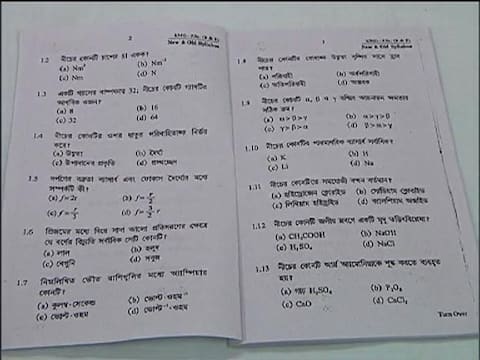 2
New & Old Syllabus
1.2 নীচের কোনটি চাপের SI একক?
(a) Nm² (b) Nm⁻²
(c) Nm (d) N
1.3 একটি গ্যাসের বাষ্পঘনত্ব 32; নীচের কোনটি গ্যাসটির
আণবিক ওজন?
(a) 8 (b) 16
(c) 32 (d) 64
1.4 নীচের কোনটির ওপর ধাতুর পরিবাহিতাঙ্ক নির্ভর
করে?
(a) উষ্ণতা (b) দৈর্ঘ্য
(c) উপাদানের প্রকৃতি (d) প্রস্থচ্ছেদ
1.5 দর্পণের বক্রতা ব্যাসার্ধ এবং ফোকাস দৈর্ঘ্যের মধ্যে
সম্পর্কটি কী?
(a) f=2r (b) f=r/2
(c) f=r/3 (d) f=3/2 r
1.6 প্রিজমের মধ্যে দিয়ে সাদা আলো প্রতিসরণের ক্ষেত্রে
যে বর্ণের বিচ্যুতি সর্বনিম্ন সেটি কোনটি?
(a) লাল (b) হলুদ
(c) বেগুনি (d) সবুজ
1.7 নিম্নলিখিত ভৌত রাশিগুলির মধ্যে অ্যাম্পিয়ার
কোনটি?
(a) কুলম্ব-সেকেন্ড (b) ভোল্ট-ওহম⁻¹
(c) ভোল্ট-ওহম (d) ভোল্ট⁻¹-ওহম
3
New & Old Syllabus
1.8 নীচের কোনটির রোধাঙ্ক উষ্ণতা বৃদ্ধির সাথে হ্রাস
পায়?
(a) পরিবাহী (b) অর্ধপরিবাহী
(c) অতিপরিবাহী (d) অন্তরক
1.9 নীচের কোনটি α, β ও γ রশ্মির আয়নায়ন ক্ষমতার
সঠিক ক্রম?
(a) α>β>γ (b) α>γ>β
(c) γ>β>α (d) β>α>γ
1.10 নীচের কোনটির পারমাণবিক ব্যাসার্ধ সর্বনিম্ন?
(a) K (b) H
(c) Li (d) Na
1.11 নীচের কোনটিতে সমযোজী বন্ধন বর্তমান?
(a) হাইড্রোজেন ক্লোরাইড (b) সোডিয়াম ক্লোরাইড
(c) লিথিয়াম হাইড্রাইড (d) ক্যালশিয়াম অক্সাইড
1.12 নীচের কোনটি জলীয় দ্রবণে একটি মৃদু তড়িৎবিশ্লেষ্য?
(a) CH₃COOH (b) NaOH
(c) H₂SO₄ (d) NaCl
1.13 নীচের কোনটি আর্দ্র অ্যামোনিয়াকে শুষ্ক করতে ব্যবহৃত
হয়?
(a) গাঢ় H₂SO₄ (b) P₂O₅
(c) CaO (d) CaCl₂
Turn Over